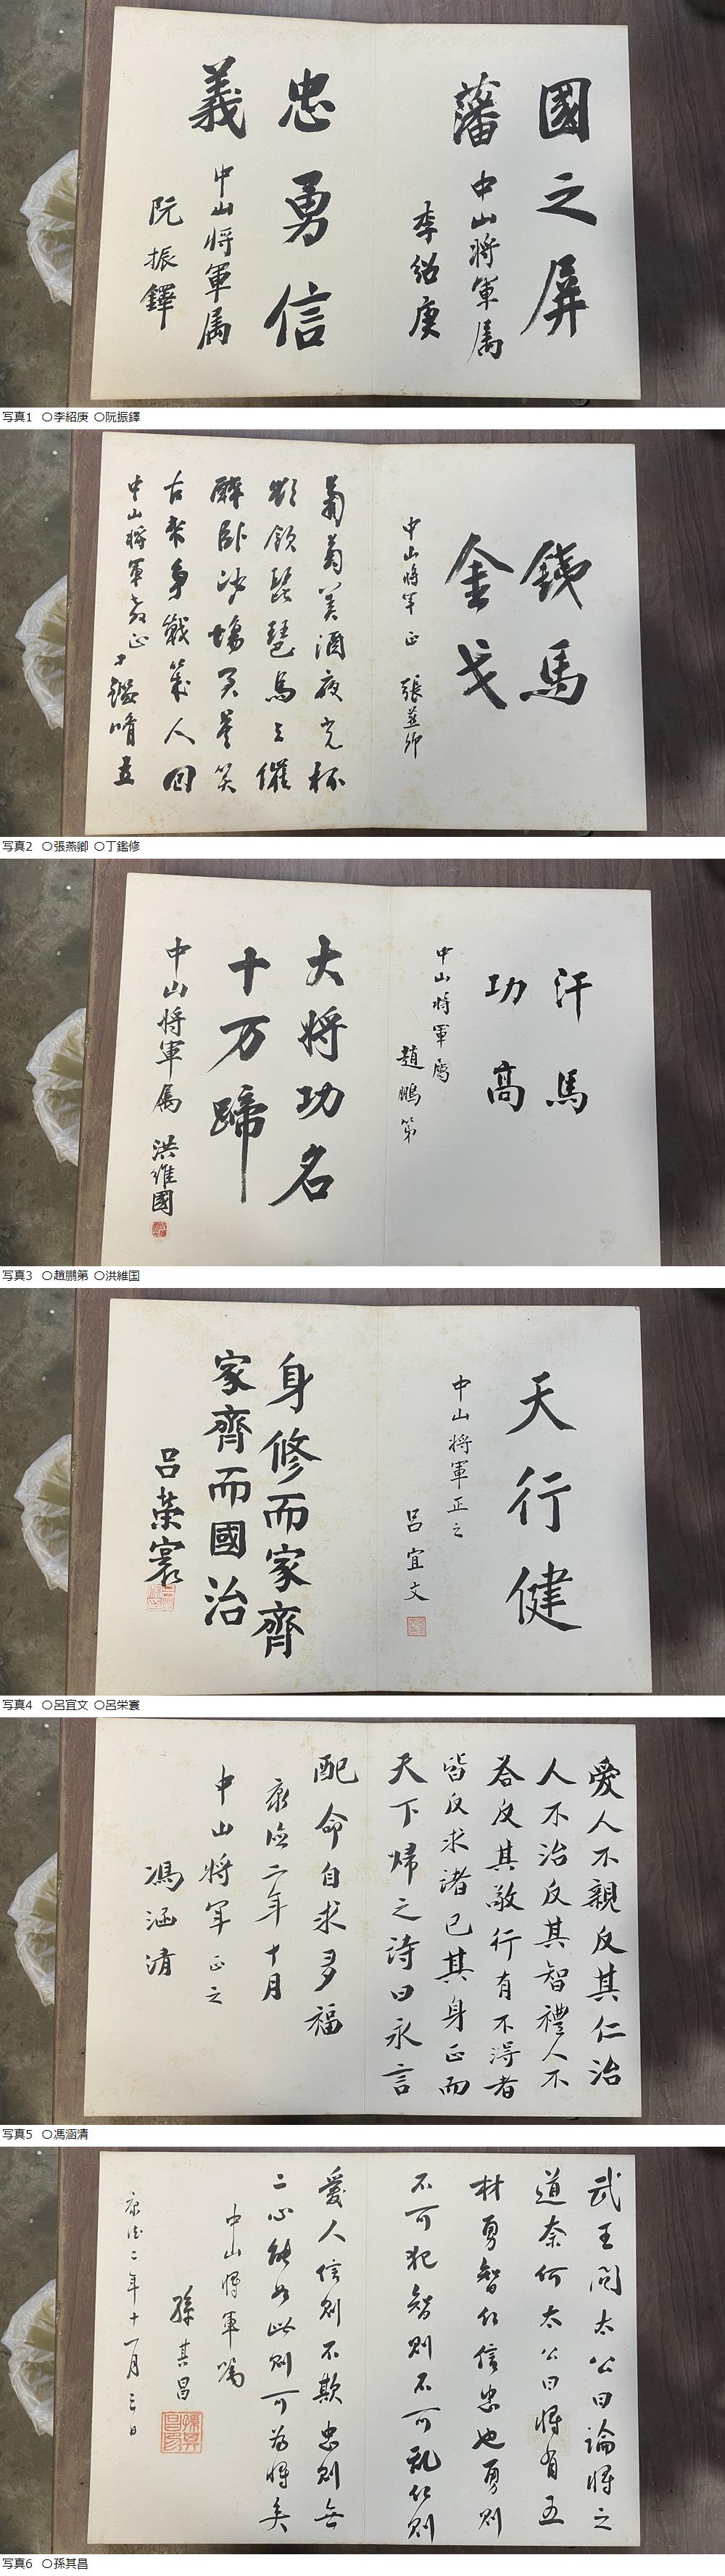 國之屏
藩
中山將軍属
李紹庚
忠勇信
義
中山將軍属
阮振鐸
写真1 〇李紹庚 〇阮振鐸
銕馬
金戈
中山將軍正
張燕卿
葡萄美酒夜光杯
欲飲琵琶馬上催
醉臥沙場君莫笑
古來爭戰幾人回
中山將軍教正
丁鑑脩
写真2 〇張燕卿 〇丁鑑修
汗馬
功高
中山將軍属
趙鵬第
大將功名
十万蹄
中山將軍属 洪維國
写真3 〇趙鵬第 〇洪維国
天行健
中山將軍正之
呂宜文
身修而家齊
家齊而國治
呂榮寰
写真4 〇呂宜文 〇呂栄寰
愛人不親反其仁治
人不治反其智禮人不
答反其敬行有不得者
皆反求諸己其身正而
天下歸之詩曰永言
配命自求多福
康德二年十月
中山將軍正之
馮涵清
写真5 〇馮涵清
武王問太公曰論將之
道奈何太公曰將有五
材勇智仁信忠也勇則
不可犯智則不可亂仁則
愛人信則不欺忠則無
二心能如此則可為將矣
中山將軍囑
孫其昌
康德二年十一月三日
写真6 〇孫其昌